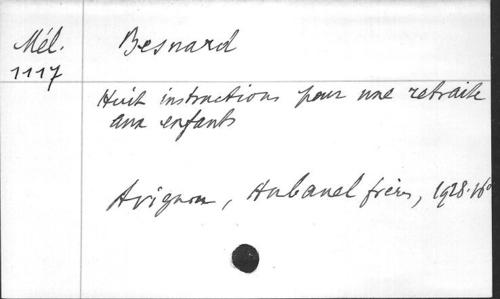 Mél. Besnard
1117
Huit instructions pour une retraite
aux enfants
Avignon, Aubanel frères, 1928. 16°